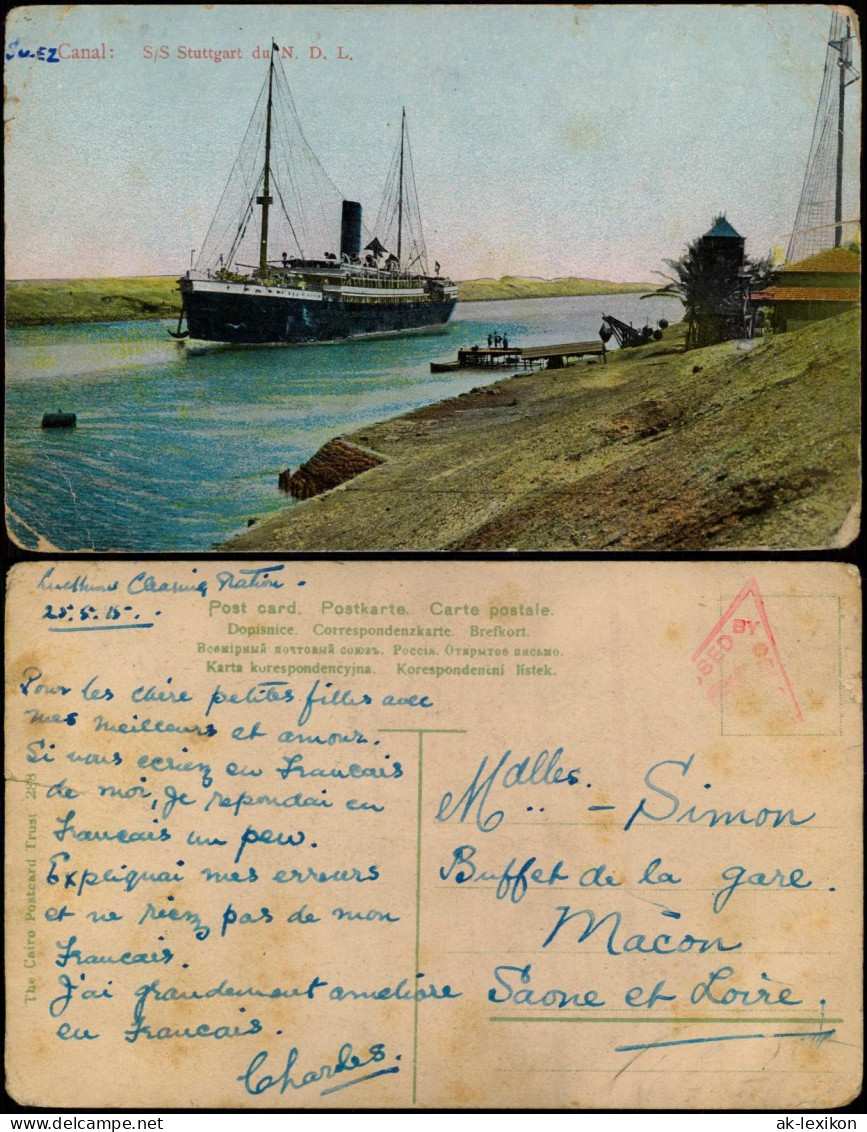 Suez Canal: S/S Stuttgart du N. D. L.
Clearing Station.
25.5.15.
Post card. Postkarte. Carte postale.
Dopisnice. Correspondenzkarte. Brefkort.
Всемірный почтовый союзъ. Россія. Открытое письмо.
Karta korespondencyjna. Korespondenční lístek.
SSED BY
Pour les chère petites filles avec
mes meilleurs et amour.
Si vous ecriez en Francais
de moi, Je repondai en
Francais un peu.
Expliquai mes erreurs
et ne riez pas de mon
Francais.
J'ai grandement ameliore
en Francais.
Charles.
The Cairo Postcard Trust 288
Mdlles. - Simon
Buffet de la gare.
Mâcon
Saone et Loire.
ak-lexikon